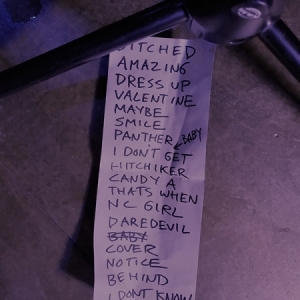 DITCHED
AMAZING
DRESS UP
VALENTINE
MAYBE
SMILE
PANTHER BABY
I DON'T GET
HITCHIKER
CANDY A
THATS WHEN
NC GIRL
DAREDEVIL
BABY
COVER
NOTICE
BEHIND
I DONT KNOW